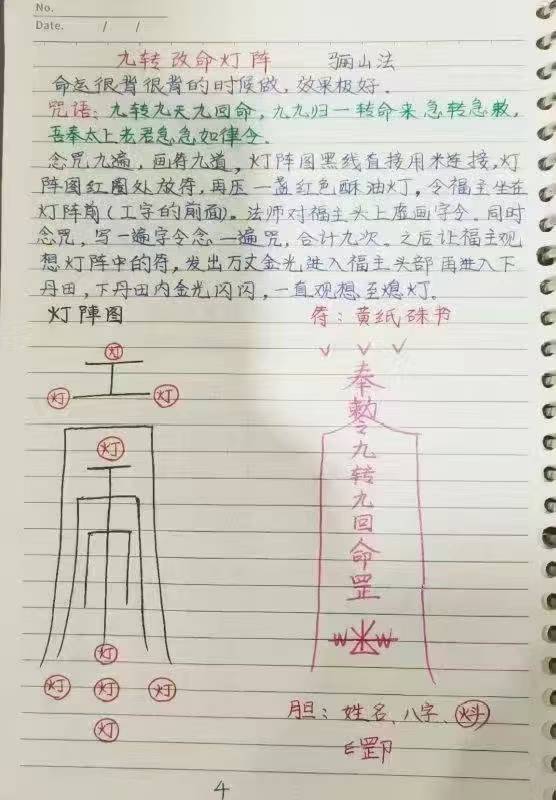 No.
Date. / /
九转改命灯阵 骊山法
命运很背很背的时候做，效果极好．
咒语：九转九天九回命，九九归一转命来急转急敕，
吾奉太上老君急急如律令．
念咒九遍，画符九道，灯阵图黑线直接用米连接，灯
阵图红圈处放符，再压一盏红色酥油灯，令福主坐在
灯阵前（工字的前面）。法师对福主头上虚画字令．同时
念咒，写一遍字令念一遍咒，合计九次．之后让福主观
想灯阵中的符，发出万丈金光进入福主头部再进入下
丹田，下丹田内金光闪闪，一直观想至熄灯．
灯陣图 符：黄纸硃书
灯
灯 灯
灯
灯
灯 灯 灯
灯
奉
勅
令
九
转
九
回
命
罡
胆：姓名、八字、
4